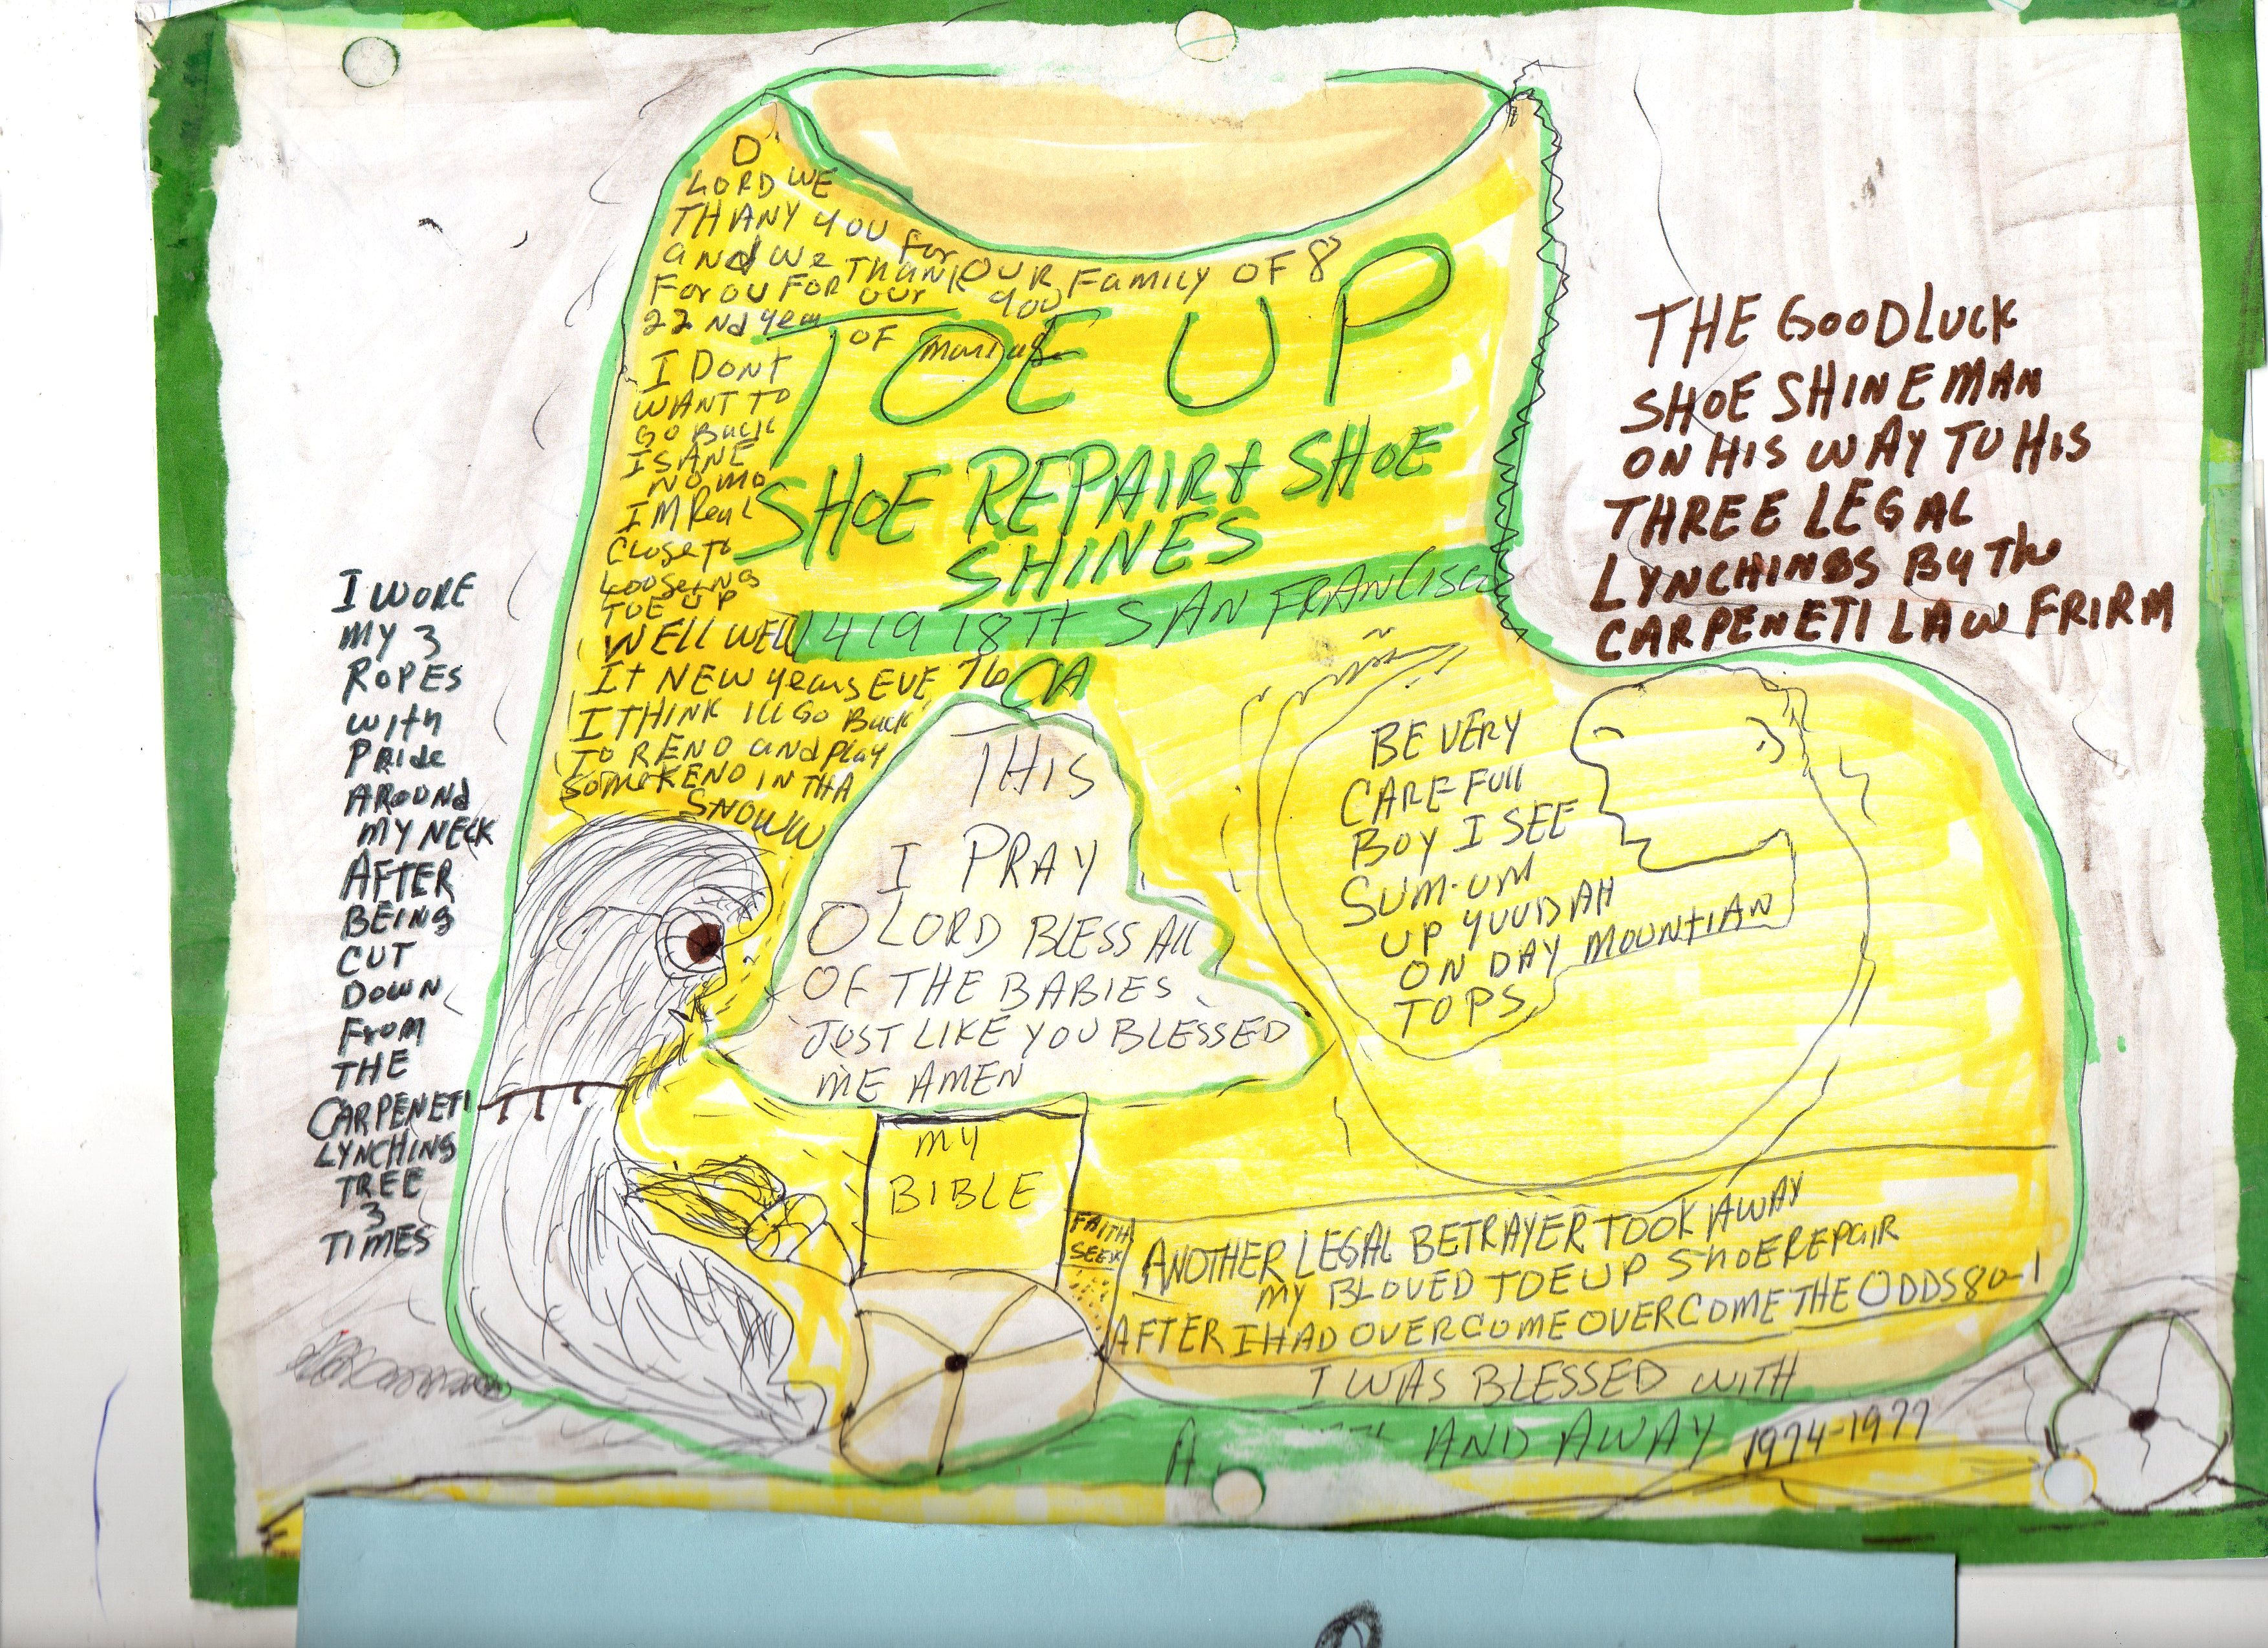 O
LORD WE
THANY YOU For
and we THANK OUR Family OF 8
For OU FOR OUR 900
22 Nd year OF
I DONT
WANT TO
GO Back
ISANE
NO MO
IM Real
Close To
LooseING
TOE UP
WELL WELL
It NEW years EVE 76
I THINK ILL GO Back
TO RENO and Play
Some KENO IN THA
SNOWW
TOE UP
SHOE REPAIR & SHOE
SHINES
1419 18TH SAN FRANCISCO
CA
THE GOODLUCK
SHOE SHINE MAN
ON HIS WAY TO HIS
THREE LEGAL
LYNCHINGS By The
CARPENETI LAW FRIRM
I WORE
MY 3
ROPES
with
PRIde
AROUND
MY NECK
AFTER
BEING
CUT
DOWN
From
THE
CARPENETI
LYNCHING
TREE
3
TIMES
THIS
I PRAY
O LORD BLESS All
OF THE BABIES
JUST LIKE YOU BLESSED
ME AMEN
BE VERY
CAREFUll
BOY I SEE
SUM-UM
UP YUUDAH
ON DAY MOUNTIAN
TOPS
MY
BIBLE
FAITH
SEEK
ANOTHER LEGAL BETRAYER TOOK AWAY
MY BLOVED TOE UP SHOE REPAIR
AFTER I HAD OVERCOME OVERCOME THE ODDS 80-1
I WAS BLESSED WITH
A AND AWAY 1974-1977